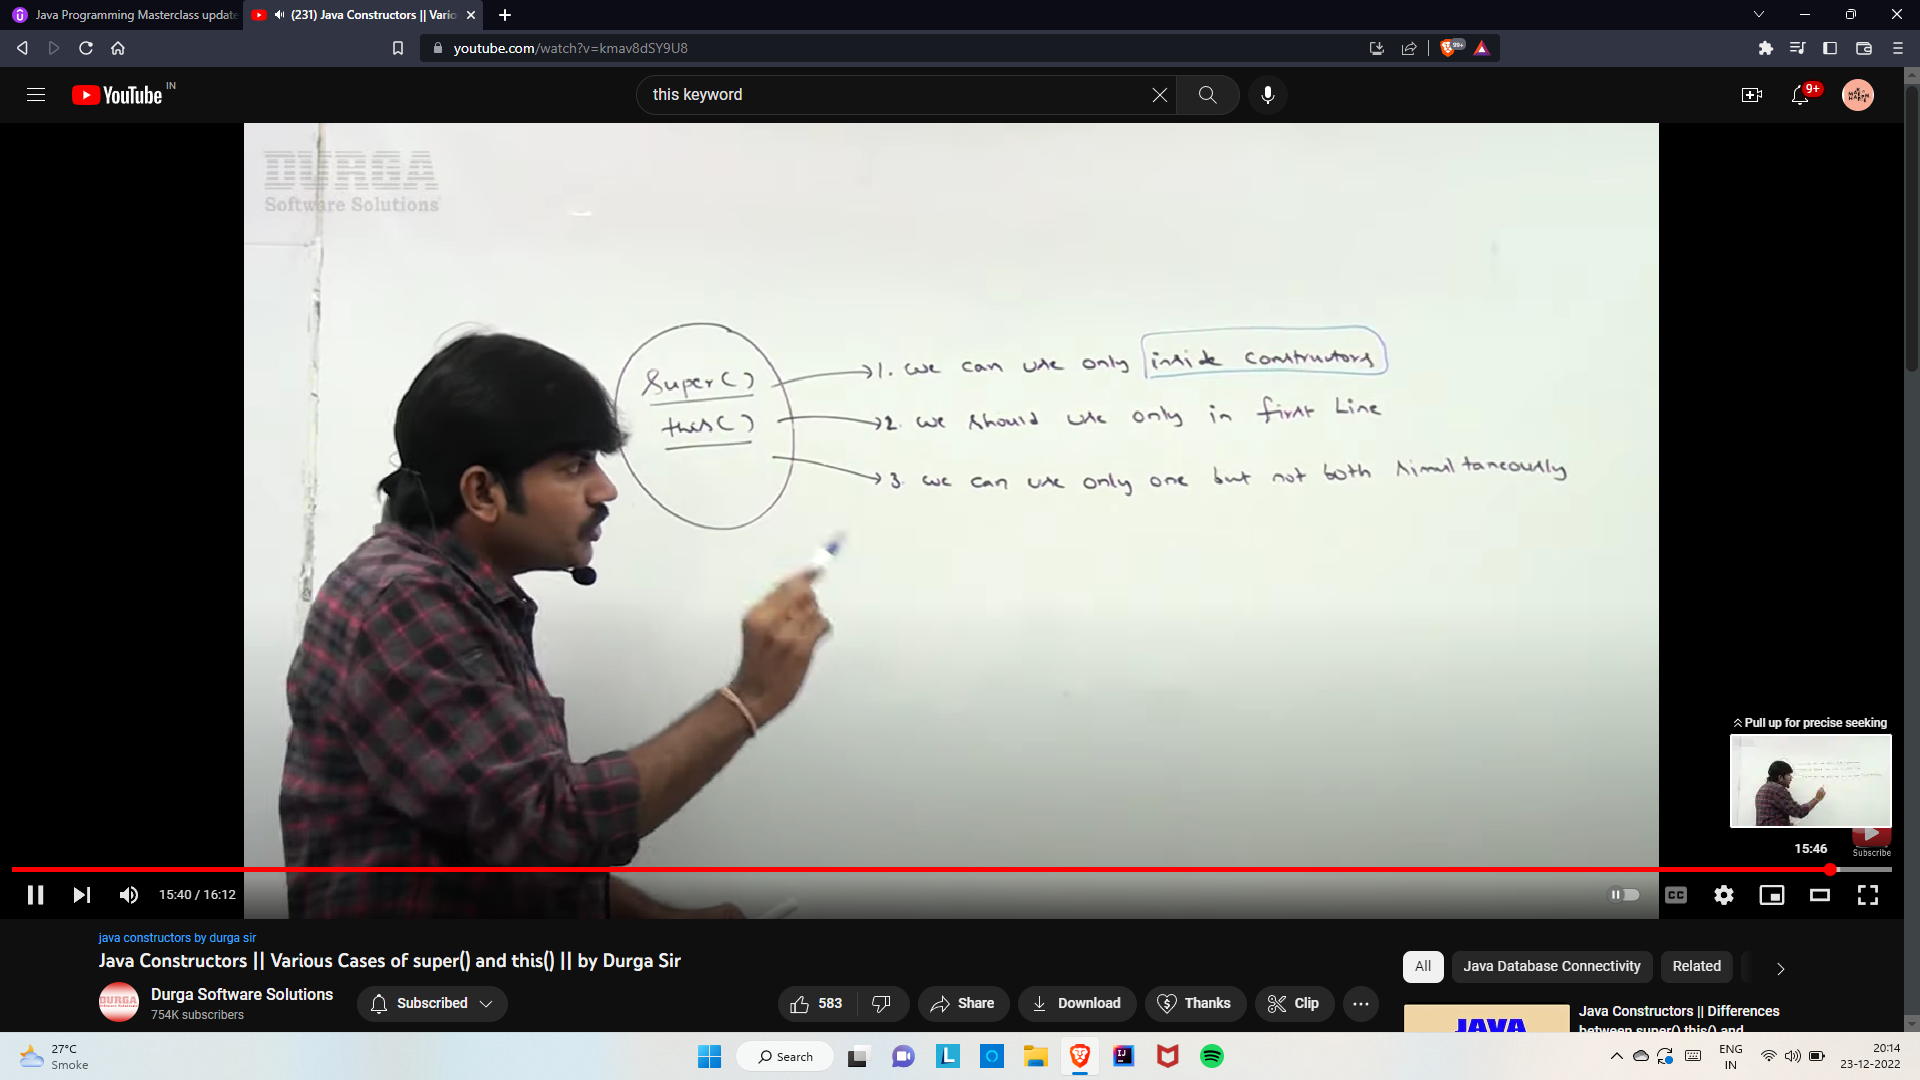 Java Programming Masterclass update
(231) Java Constructors || Vario
youtube.com/watch?v=kmav8dSY9U8
99+
YouTube IN
this keyword
9+
DURGA
Software Solutions
Super()
this()
1. we can use only inside constructors
2. we should use only in first Line
3. we can use only one but not both simultaneously
Pull up for precise seeking
15:46
Subscribe
15:40 / 16:12
CC
java constructors by durga sir
Java Constructors || Various Cases of super() and this() || by Durga Sir
All
Java Database Connectivity
Related
DURGA
Durga Software Solutions
754K subscribers
Subscribed
583
Share
Download
Thanks
Clip
JAVA
Java Constructors || Differences
between super() this() and
27°C
Smoke
Search
L
IJ
ENG
IN
20:14
23-12-2022